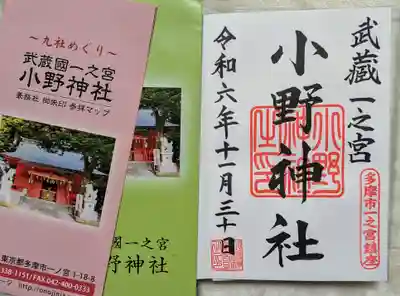 ～九社めぐり～
武蔵國一之宮
小野神社
兼務社 御朱印 参拝マップ
東京都多摩市一ノ宮 1-18-8
338-1151/FAX.042-400-0333
ージ http://onojinja
國一之宮
野神社
武蔵一之宮
多摩市一之宮鎮座
小野神社
令和六年十一月三十日